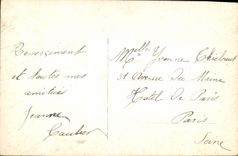 et toutes mes
amitiés
Jeanne
Gautier
Mademoiselle Yvonne Thiébaut
31 Avenue du Maine
Hotel de Paris
Paris
Seine